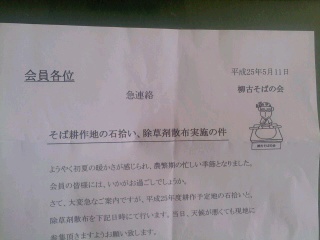 会員各位
平成25年5月11日
急連絡
そばの会
そば耕作地の石拾い、除草剤散布実施の件
ようやく初夏の暖かさが感じられ、農繁期の忙しい季節となりました。
会員の皆様には、いかがお過ごしでしょうか。
さて、大変急なご案内ですが、平成25年度耕作予定地の石拾いと、
除草剤散布を下記日時にて行います。当日、天候が悪くても現地に
頂きますようお願い致します。